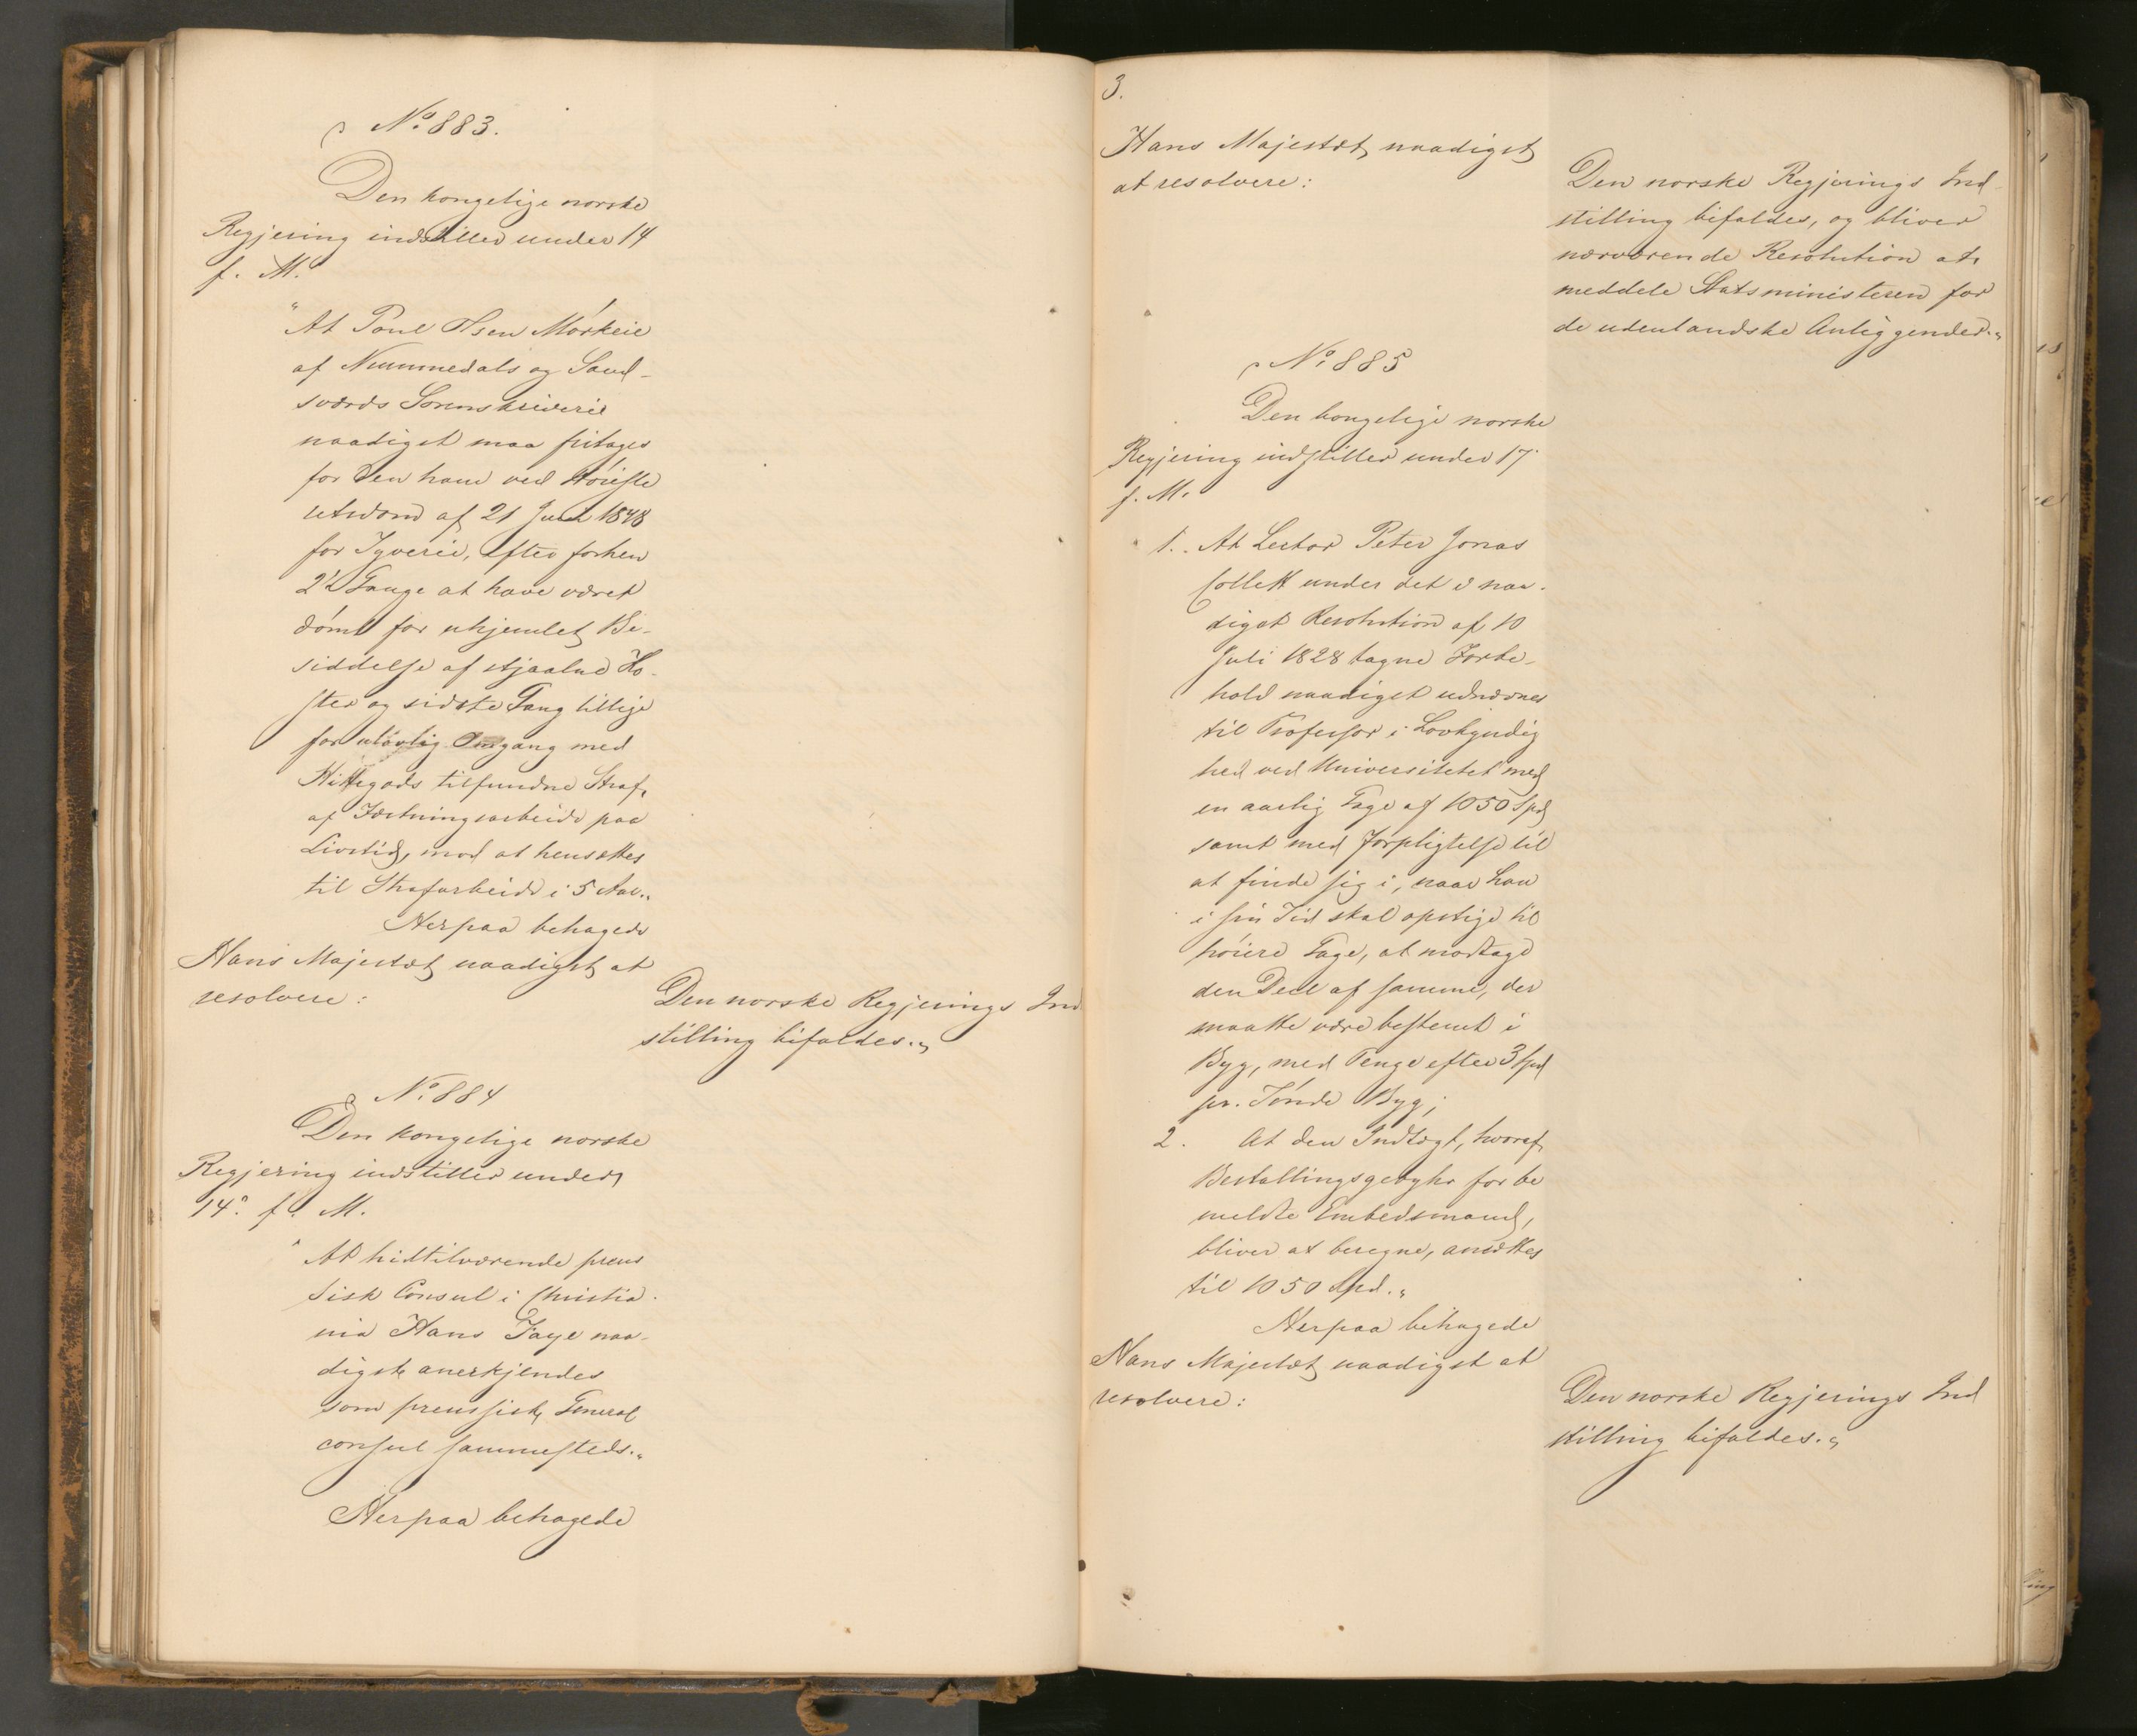 No. 883.
Den kongelige norske
Regjering indstiller under 14
f. M.
"At Poul Olsen Mörkeie
af Nummedals og Sand-
sværds Sorenskriverie
naadigst maa fritages
for den ham ved Höieste
retsdom af 21 Juni 1848
for Tyverie, efter forhen
2de Gange at have været
dömt for uhjemlet Be-
siddelse af stjaalne Ko-
ster og sidste Gang tillige
for ulovlig Omgang med
Hittegods tilfundne Straf
af Fæstningsarbeide paa
Livstid, mod at hensættes
til Strafarbeide i 5 Aar."
Herpaa behagede
Hans Majestæt naadigst at
resolvere:
Den norske Regjerings Ind
stilling bifaldes."
No. 884
Den kongelige norske
Regjering indstiller under
14. f. M.
"At hidtilværende preus
sisk Consul i Christia-
nia Hans Faye naa-
digst anerkjendes
som preussisk General
consul sammesteds."
Herpaa behagede
3.
Hans Majestæt naadigst
at resolvere:
Den norske Regjerings Ind
stilling bifaldes, og bliver
nærværende Resolution at
meddele Statsministeren for
de udenlandske Anliggender."
No. 885
Den kongelige norske
Regjering indstiller under 17
f. M.
1. At Lector Peter Jonas
Collett under det i naa-
digst Resolution af 10
Juli 1828 tagne Forbe-
hold naadigst udnævnes
til Professor i Lovkyndig
hed ved Universitetet med
en aarlig Gage af 1050 Spd
samt med Forpligtelse til
at finde sig i, naar han
i sin Tid skal opstige til
höiere Gage, at modtage
den Deel af samme, der
maatte være bestemt i
Byg, med Penge efter 3 Spd
pr. Tönde Byg;
2. At den Indtægt, hvoraf
Bestallingsgebyhr for be
meldte Embedsmand,
bliver at beregne, ansættes
til 1050 Spd."
Herpaa behagede
Hans Majestæt naadigst at
resolvere:
Den norske Regjerings Ind
stilling bifaldes."